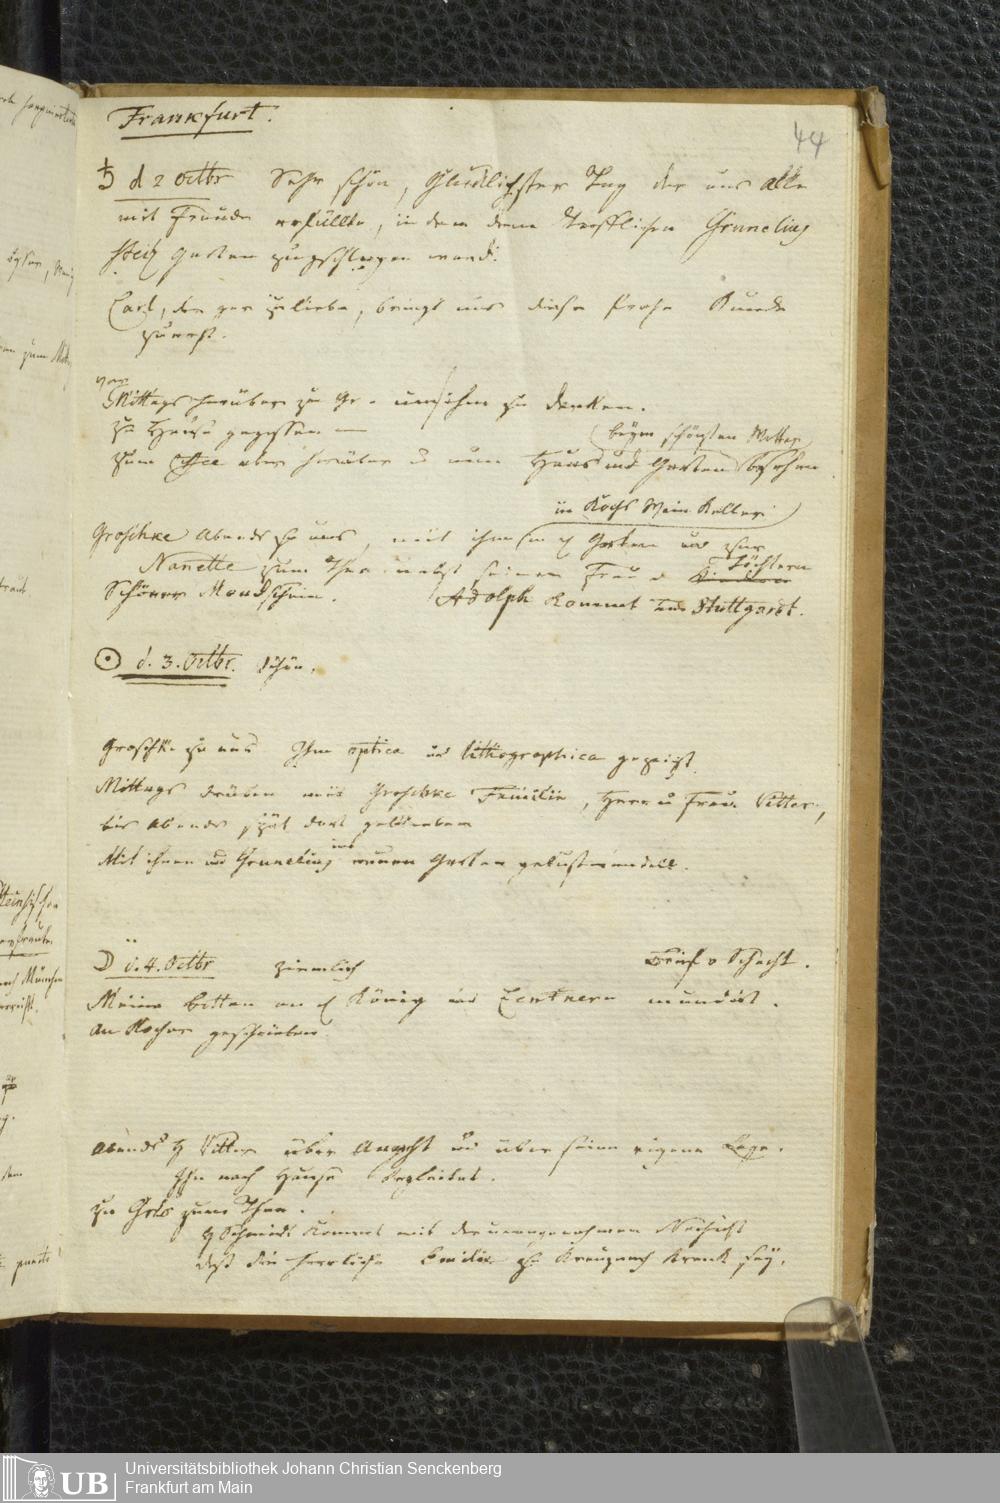 44
Frankfurt.
♄ d 2 Octbr Sehr schön, Glücklichster Tag der uns alle
mit Freude erfüllte, in dem dem trefflichen Grunelius
der Garten zugeschlagen ward.
Carl, der gar zu liebe, bringt uns diese frohe Kunde
zuerst.
vor
Mittags herüber zu Gr. um ihm zu danken.
zu Hause gegessen —
beym schönsten Wetter
zum Thee aber herüber u nun Haus und Garten besehen
in Kochs Wein Keller
Groschke Abends zu uns, mit ihm in Garten und zur
Nanette zum Thee nebst seiner Frau u Töchtern
Schöner Mondschein. Adolph kommt von Stuttgardt.
☉ d. 3. Octbr. schön.
Groschke zu uns Ihm optica und lithographica gezeigt.
Mittags drüben mit Groschke Familie, Herr u Frau Vetter,
bis Abends spät dort geblieben
Mit ihnen und Grunelius im neuen Garten gelustwandelt.
☽ d. 4. Octbr ziemlich Brief v Schacht.
Meine bitten an König und Zentnern mundirt.
An Kocher geschrieben
Abends Vetter über und über seine eigene Lage.
Ihn nach Hause begleitet.
zu Grs zum Thee.
Schmidt kommt mit der unangenehmen Nachricht
daß die herrliche Emilie zu Kreuznach krank sey.
Universitätsbibliothek Johann Christian Senckenberg
Frankfurt am Main
UB